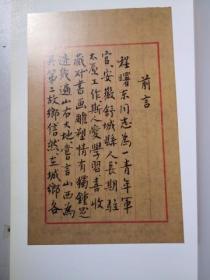 前言
程曙东同志为一青年军
官安徽舒城县人长期驻
太原工作斯人爱学习喜收
藏对书画雕塑情有独钟足
迹几遍山右大地尝言山西为
其第二故乡信然在城乡各